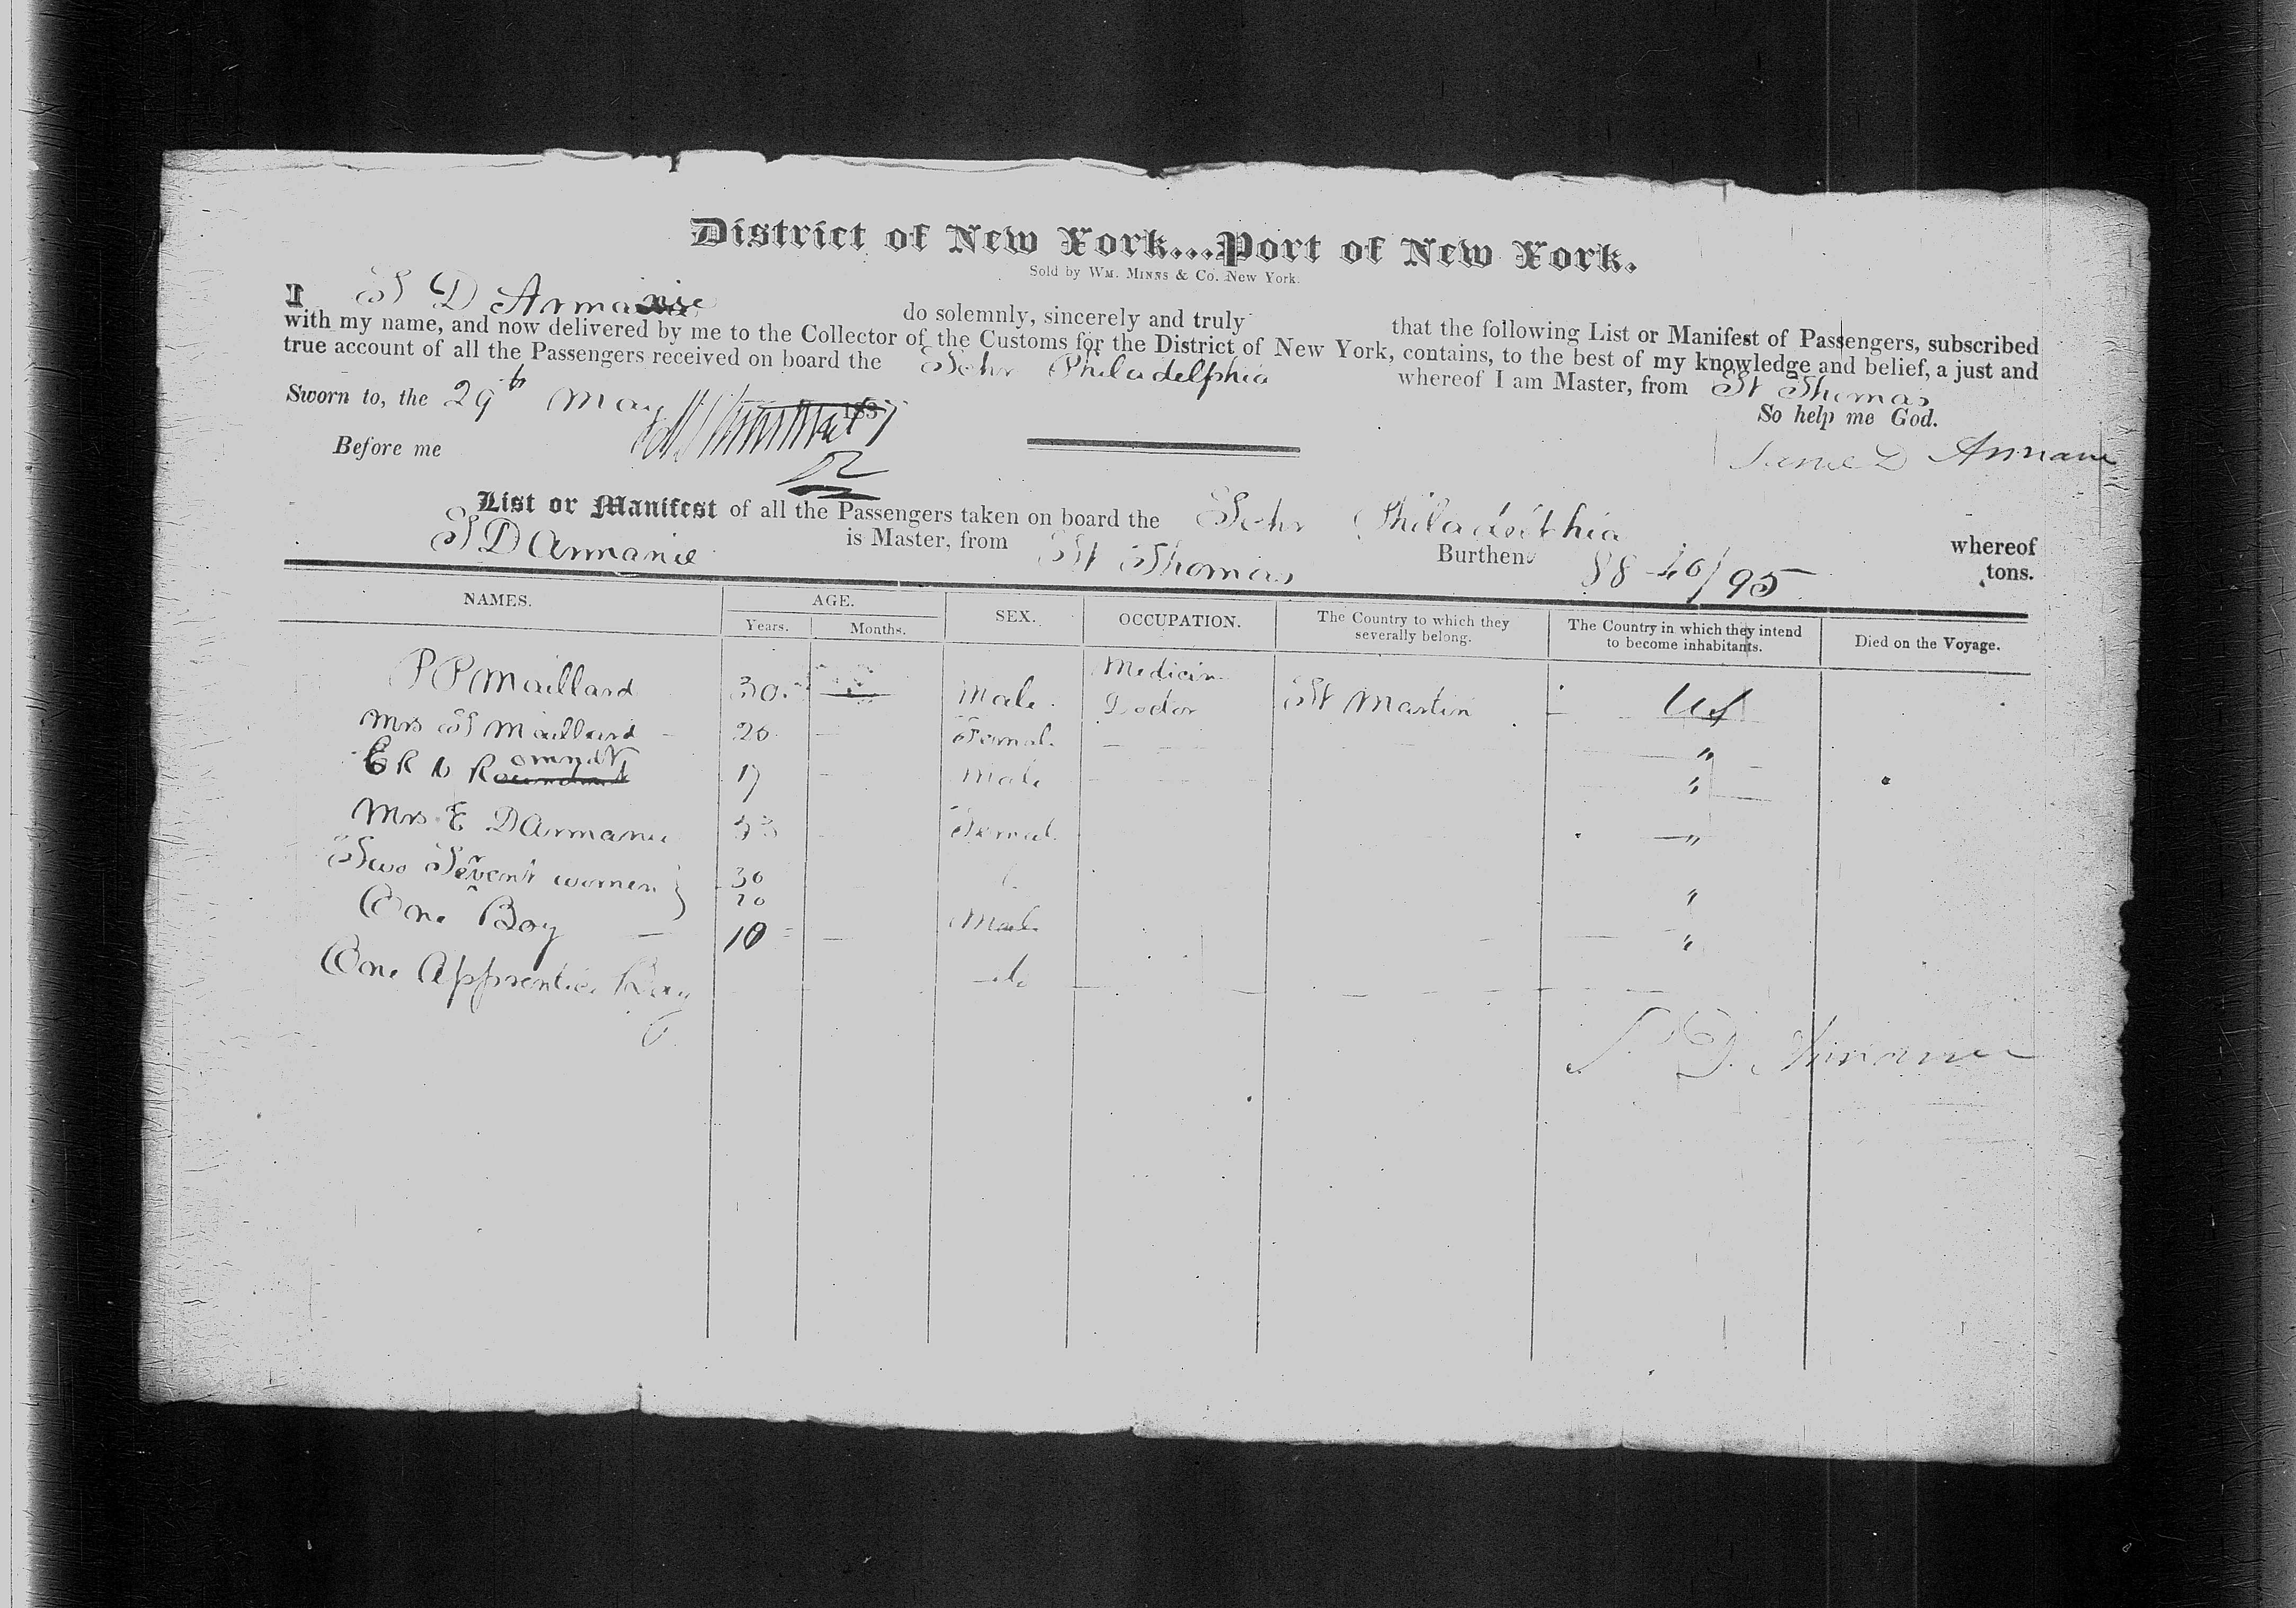 District of New York...Port of New York.
Sold by Wm. Minns & Co. New York.
I S D Armanie do solemnly, sincerely and truly that the following List or Manifest of Passengers, subscribed
with my name, and now delivered by me to the Collector of the Customs for the District of New York, contains, to the best of my knowledge and belief, a just and
true account of all the Passengers received on board the Schr Philadelphia whereof I am Master, from St Thomas
Sworn to, the 29th May 1837 So help me God.
Before me
D Armanie
List or Manifest of all the Passengers taken on board the Schr Philadelphia whereof
S D Armanie is Master, from St Thomas Burthen 88 40/95 tons.
NAMES. AGE. SEX. OCCUPATION. The Country to which they severally belong. The Country in which they intend to become inhabitants. Died on the Voyage.
Years. Months.
P P Maillard 30 Male Medicin Doctor St Martin US
Mrs S Maillard 26 Femal "
E R Romndt 17 Male "
Mrs E D Armanie Femal "
Two Servent women } 30 20 "
One Boy 10 Male "
One Apprentice Boy do
S. D. Armanie